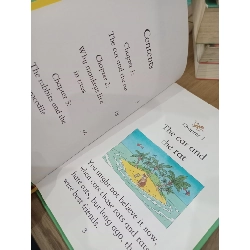 Contents
Chapter 1:
The cat and the rat
Chapter 2:
Why mosquitoes
in ears
Chapter 3:
The rabbits and the
crocodile
Chapter 1
The cat and
the rat
You might not believe it now,
rats and
cats, but long ago, the
were best friends.
3